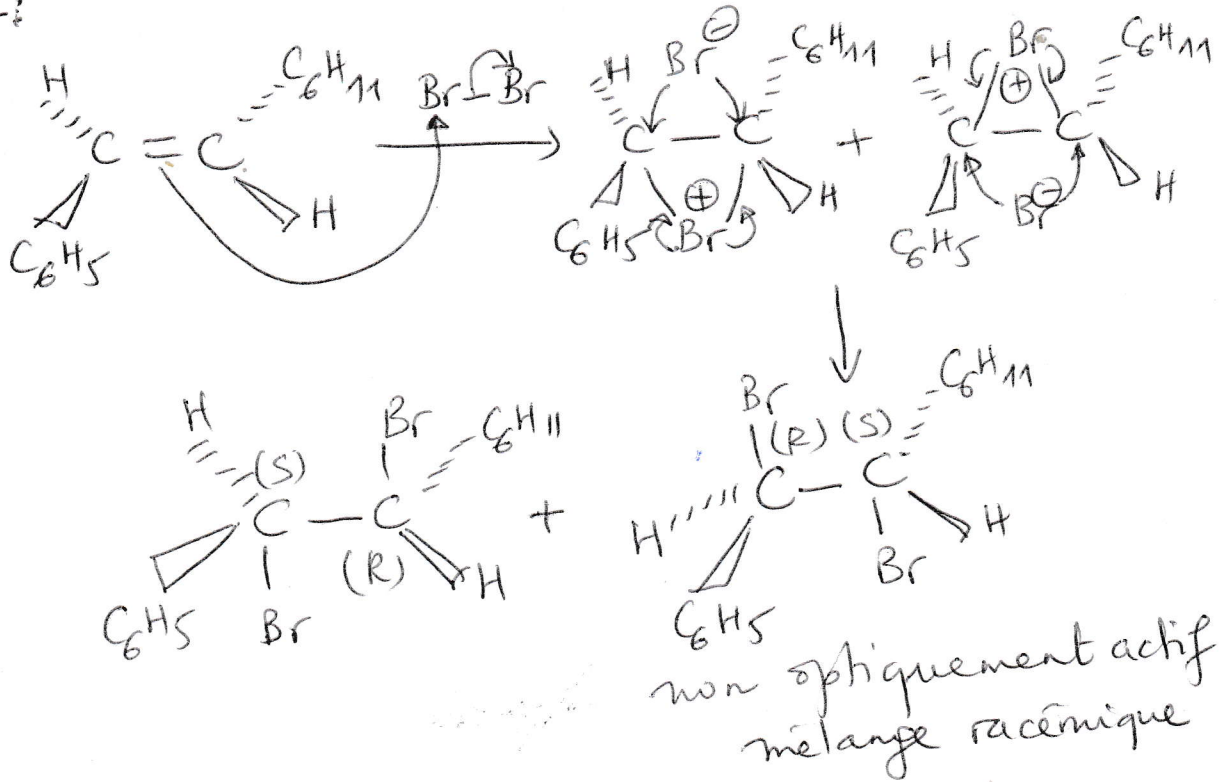 H C₆H₁₁ Br–Br
C = C
C₆H₅ H
H Br⊖ C₆H₁₁
C – C
C₆H₅ ⊕ Br H
+
H Br ⊕ C₆H₁₁
C – C
C₆H₅ Br⊖ H
H (S) Br C₆H₁₁
C – C
C₆H₅ Br (R) H
+
Br (R) (S) C₆H₁₁
H C – C H
C₆H₅ Br
non optiquement actif
mélange racémique